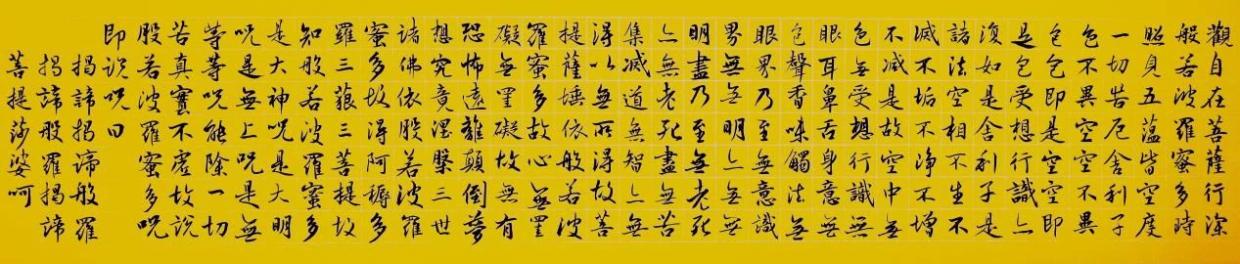 觀自在菩薩行深
般若波羅蜜多時
照見五蘊皆空度
一切苦厄舍利子
色不異空空不異
色色即是空空即
是色受想行識亦
復如是舍利子是
諸法空相不生不
滅不垢不淨不增
不減是故空中無
色無受想行識無
眼耳鼻舌身意無
色聲香味觸法無
眼界乃至無意識
界無無明亦無無
明盡乃至無老死
亦無老死盡無苦
集滅道無智亦無
得以無所得故菩
提薩埵依般若波
羅蜜多故心無罣
礙無罣礙故無有
恐怖遠離顛倒夢
想究竟涅槃三世
諸佛依般若波羅
蜜多故得阿耨多
羅三藐三菩提故
知般若波羅蜜多
是大神咒是大明
咒是無上咒是無
等等咒能除一切
苦真實不虛故說
般若波羅蜜多咒
即說咒曰
揭諦揭諦般羅
揭諦般羅揭諦
菩提莎婆呵